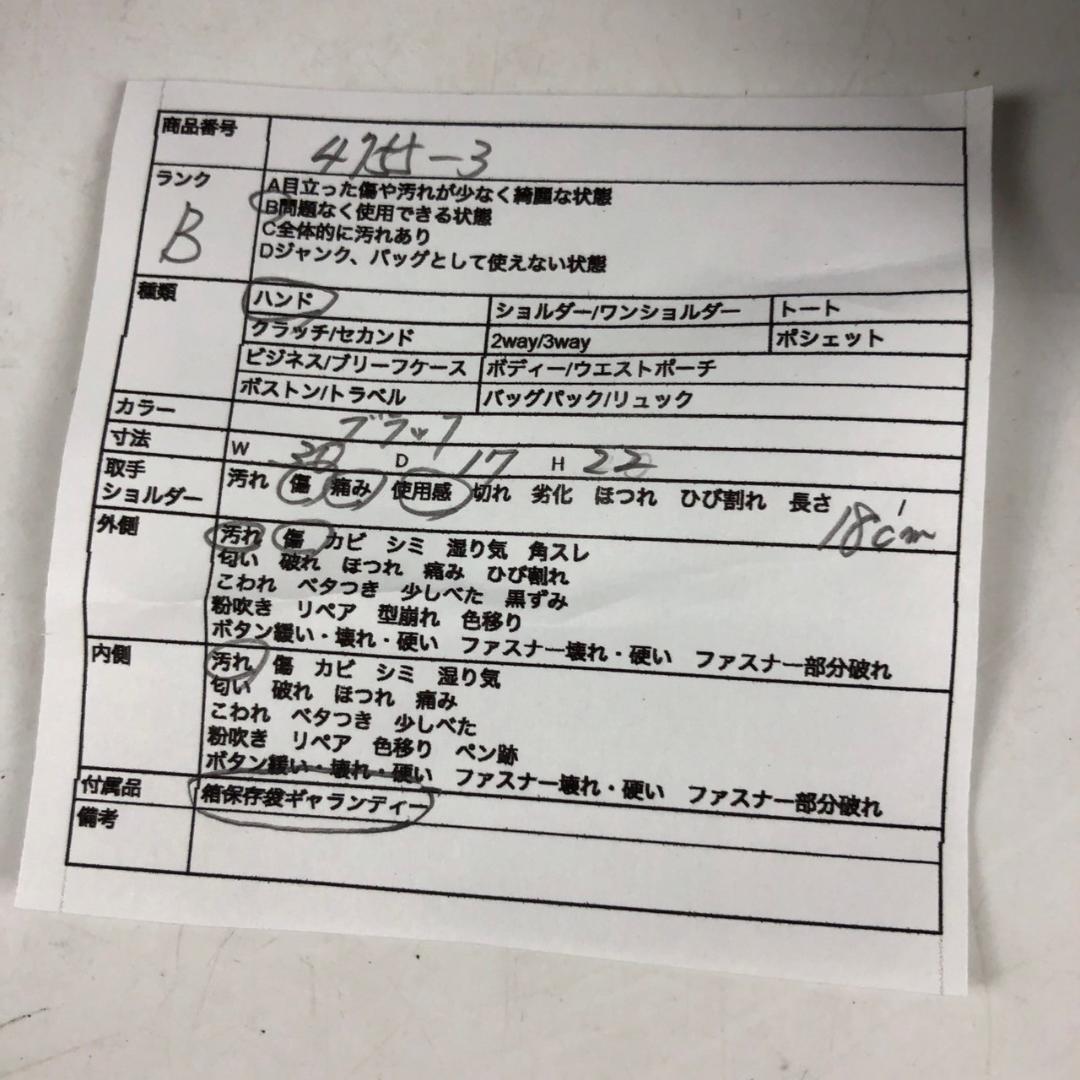 商品番号 4755-3
ランク B
A目立った傷や汚れが少なく綺麗な状態
B問題なく使用できる状態
C全体的に汚れあり
Dジャンク、バッグとして使えない状態
種類 ハンド ショルダー/ワンショルダー トート
クラッチ/セカンド 2way/3way ポシェット
ビジネス/ブリーフケース ボディー/ウエストポーチ
ボストン/トラベル バッグパック/リュック
カラー ブラック
寸法 W D 17 H 22
取手 汚れ 傷 痛み 使用感 切れ 劣化 ほつれ ひび割れ 長さ
ショルダー 18cm
外側 汚れ 傷 カビ シミ 湿り気 角スレ
匂い 破れ ほつれ 痛み ひび割れ
こわれ ベタつき 少しべた 黒ずみ
粉吹き リペア 型崩れ 色移り
ボタン緩い・壊れ・硬い ファスナー壊れ・硬い ファスナー部分破れ
内側 汚れ 傷 カビ シミ 湿り気
匂い 破れ ほつれ 痛み
こわれ ベタつき 少しべた
粉吹き リペア 色移り ペン跡
ボタン緩い・壊れ・硬い ファスナー壊れ・硬い ファスナー部分破れ
付属品 箱保存袋ギャランティー
備考